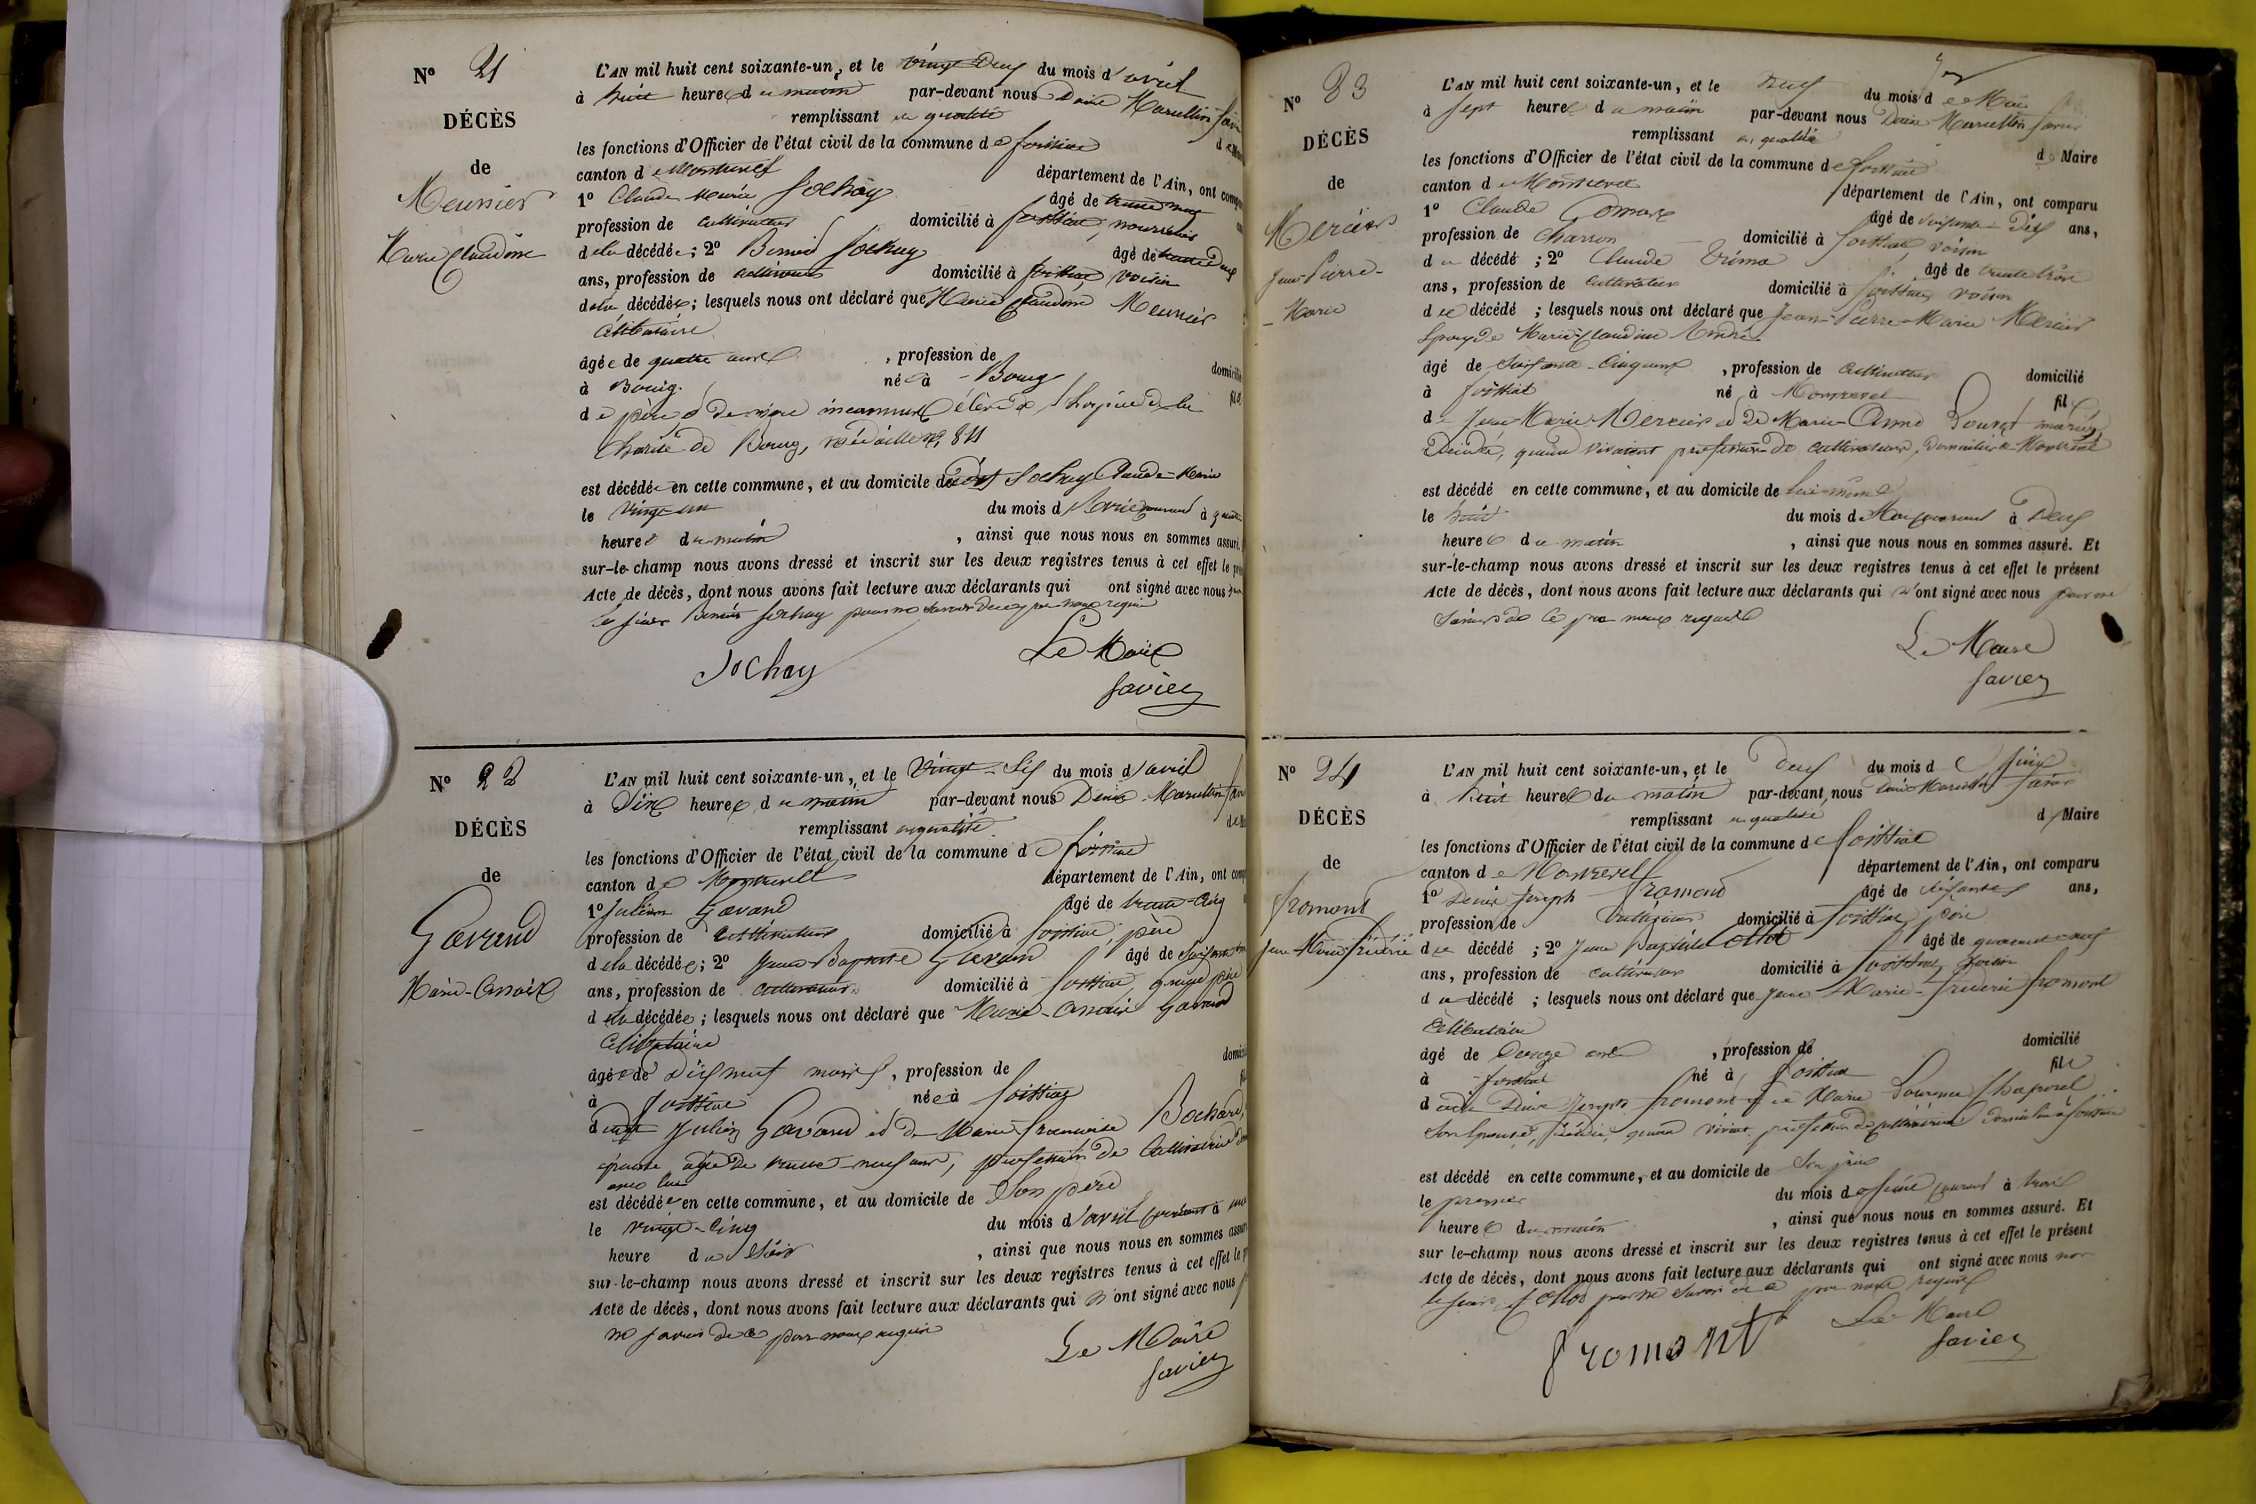 N° 21
DÉCÈS
de
Meunier
Marie Claudine
L'AN mil huit cent soixante-un, et le vingt Deux du mois d'avril
à huit heures du matin par-devant nous Denis Marcellin
remplissant en qualité
les fonctions d'Officier de l'état civil de la commune de foissiat
canton de Montrevel département de l'Ain, ont
1° Claude Marie Sochay âgé de
profession de cultivateur domicilié à foissiat, nourricier
de la décédée; 2° Benoit Sochay âgé de trente Deux
ans, profession de cultivateur domicilié à foissiat, voisin
de la décédée; lesquels nous ont déclaré que Marie Claudine Meunier
célibataire
âgée de quatre ans , profession de
à Bourg. née à Bourg
de père & de mère inconnus élève de l'hospice de la
Charité de Bourg, médaille 811
est décédée en cette commune, et au domicile dudit Sochay Claude-Marie
le vingt un du mois d'avril courant à
heures du matin , ainsi que nous nous en sommes assuré.
sur-le-champ nous avons dressé et inscrit sur les deux registres tenus à cet effet le
Acte de décès, dont nous avons fait lecture aux déclarants qui ont signé avec nous
le sieur Benoit Sochay pour ne savoir de ce par nous requis
Sochay
Le Maire
favier
N° 22
DÉCÈS
de
Gavand
Marie-
L'AN mil huit cent soixante-un, et le vingt-Six du mois d'avril
à Dix heures du matin par-devant nous Denis-Marcellin
remplissant en qualité
les fonctions d'Officier de l'état civil de la commune de foissiat
canton de Montrevel département de l'Ain, ont
1° Julien Gavand âgé de trente-cinq
profession de cultivateur domicilié à foissiat, père
de la décédée; 2° Jean-Baptiste Gavand âgé de
ans, profession de cultivateur domicilié à foissiat, grand père
de la décédée; lesquels nous ont déclaré que Marie- Gavand
Célibataire
âgée de Dix neuf mois , profession de
à foissiat née à foissiat
dudit Julien Gavand et de Marie françoise Bochard,
épouse âgée de trente-neuf ans, profession de Cultivatrice
avec lui
est décédée en cette commune, et au domicile de Son père
le vingt-cinq du mois d'avril courant à une
heure du Soir , ainsi que nous nous en sommes
sur-le-champ nous avons dressé et inscrit sur les deux registres tenus à cet effet le
Acte de décès, dont nous avons fait lecture aux déclarants qui n'ont signé avec nous
ne savoir de ce par nous requis
Le Maire
favier
N° 23
DÉCÈS
de
Mercier
Jean-Pierre-
Marie
L'AN mil huit cent soixante-un, et le neuf du mois de Mai
à sept heures du matin par-devant nous Denis Marcellin favier
remplissant en qualité de Maire
les fonctions d'Officier de l'état civil de la commune de foissiat
canton de Montrevel département de l'Ain, ont comparu
1° Claude âgé de soixante-Dix ans,
profession de Charron domicilié à foissiat, voisin
du décédé ; 2° Claude âgé de trente trois
ans, profession de cultivateur domicilié à foissiat, voisin
du décédé ; lesquels nous ont déclaré que Jean-Pierre-Marie Mercier
Epoux de Marie-Claudine
âgé de Soixante-Cinq ans , profession de cultivateur domicilié
à foissiat né à Montrevel fils
de Jean Marie Mercier et de Marie-Anne mariés
Décédés, quand vivaient profession de cultivateurs, domiciliés à Montrevel
est décédé en cette commune, et au domicile de lui-même
le huit du mois de Mai courant à Deux
heures du matin , ainsi que nous nous en sommes assuré. Et
sur-le-champ nous avons dressé et inscrit sur les deux registres tenus à cet effet le présent
Acte de décès, dont nous avons fait lecture aux déclarants qui n'ont signé avec nous pour ne
savoir de ce par nous requis
Le Maire
favier
N° 24
DÉCÈS
de
fromont
Jean-Marie-frédéric
L'AN mil huit cent soixante-un, et le Deux du mois de Juin
à huit heures du matin par-devant nous Denis Marcellin favier
remplissant en qualité de Maire
les fonctions d'Officier de l'état civil de la commune de foissiat
canton de Montrevel département de l'Ain, ont comparu
1° Denis Joseph fromont âgé de ans,
profession de domicilié à foissiat, père
du décédé ; 2° Jean Baptiste âgé de quarante neuf
ans, profession de cultivateur domicilié à foissiat, voisin
du décédé ; lesquels nous ont déclaré que Jean-Marie-frédéric fromont
Célibataire
âgé de Douze ans , profession de domicilié
à foissiat né à foissiat fils
dudit Denis Joseph fromont et de Marie Laurence
Son Epouse, Décédée, quand vivait profession de cultivatrice domiciliée à foissiat
est décédé en cette commune, et au domicile de Son père
le premier du mois de Juin courant à trois
heures du matin , ainsi que nous nous en sommes assuré. Et
sur le-champ nous avons dressé et inscrit sur les deux registres tenus à cet effet le présent
Acte de décès, dont nous avons fait lecture aux déclarants qui ont signé avec nous non
le sieur pour ne savoir de ce par nous requis
fromont
Le Maire
favier